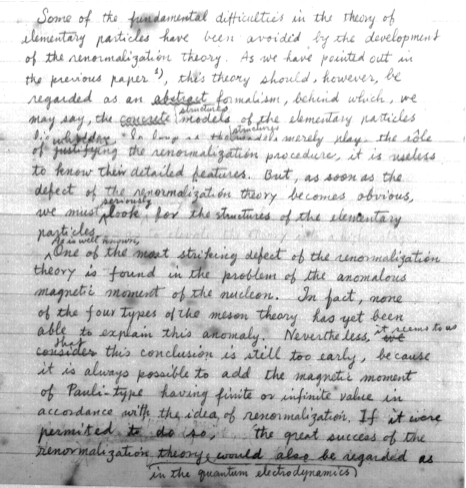 Some of the fundamental difficulties in the theory of
elementary particles have been avoided by the development
of the renormalization theory. As we have pointed out in
the previous paper 2), this theory should, however, be
regarded as an abstract formalism, behind which, we
structures
may say, the concrete models of the elementary particles
structures
lie hidden. In long as the models merely play the rôle
of justifying the renormalization procedure, it is useless
to know their detailed features. But, as soon as the
defect of the renormalization theory becomes obvious,
seriously
we must look for the structures of the elementary
particles.
As is well known,
One of the most striking defect of the renormalization
theory is found in the problem of the anomalous
magnetic moment of the nucleon. In fact, none
of the four types of the meson theory has yet been
able to explain this anomaly. Nevertheless, it seems to us
that
consider this conclusion is still too early, because
it is always possible to add the magnetic moment
of Pauli-type having finite or infinite value in
accordance with the idea of renormalization. If it were
permitted to do so, the great success of the
renormalization theory would also be regarded as
in the quantum electrodynamics